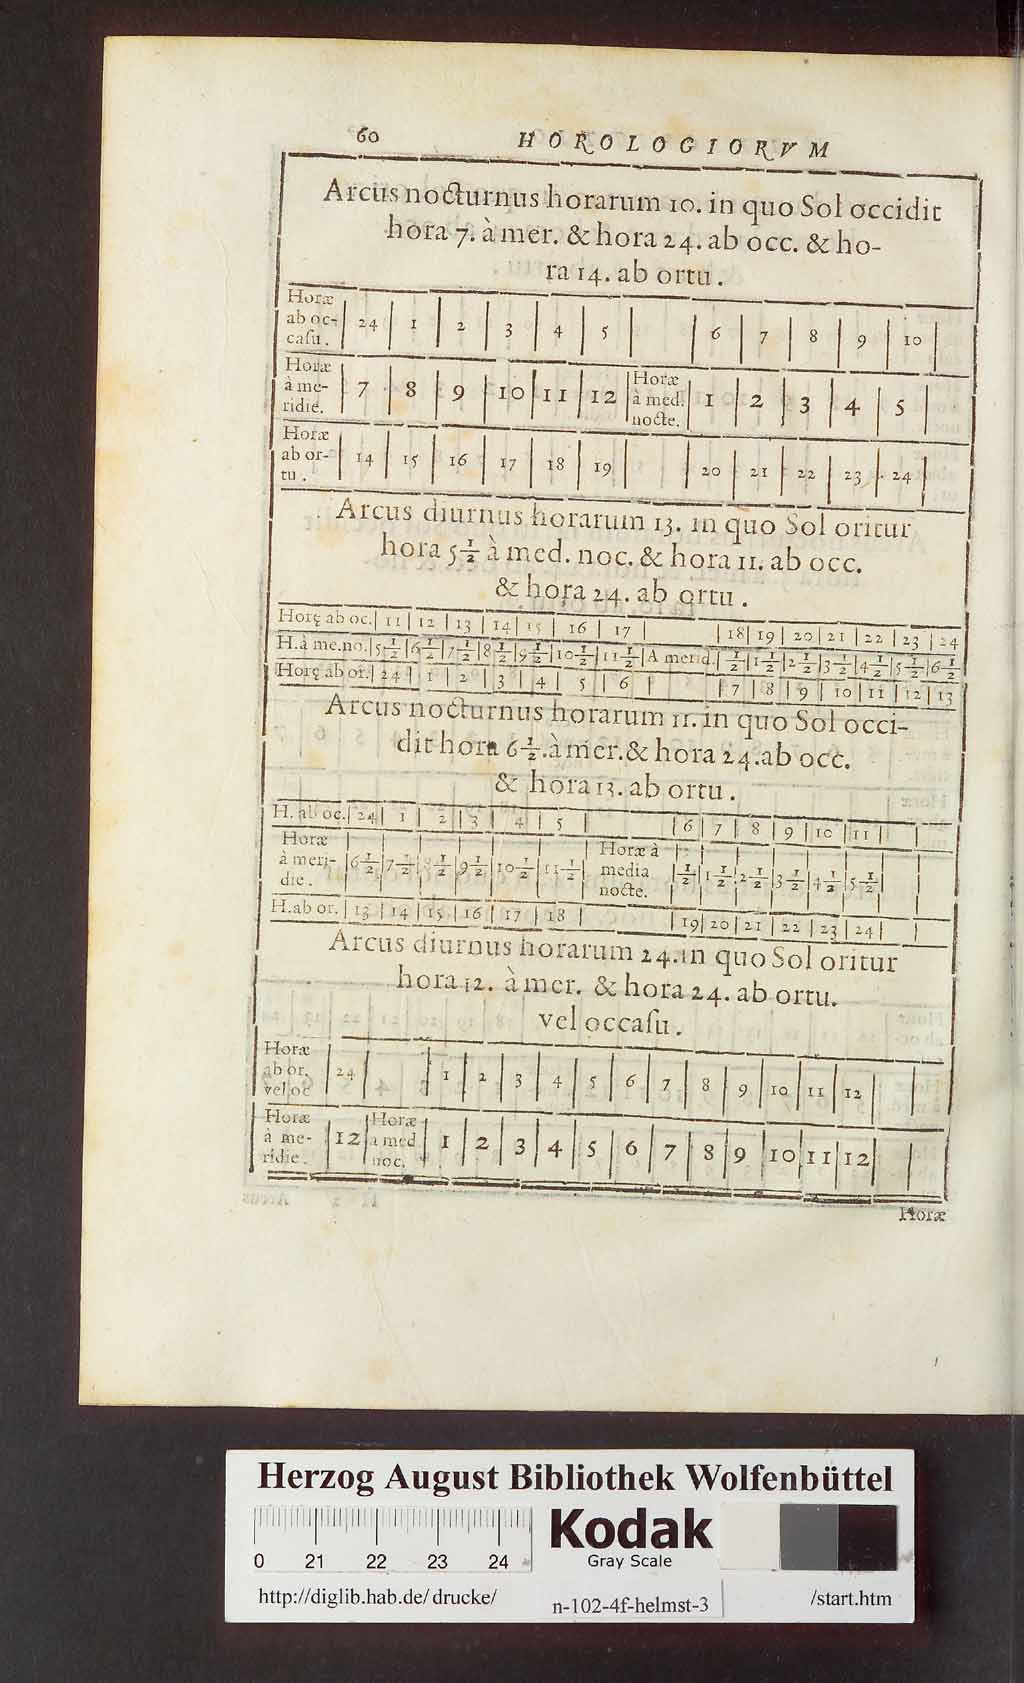 60 HOROLOGIORVM
Arcus nocturnus horarum 10. in quo Sol occidit
hora 7. à mer. & hora 24. ab occ. & ho-
ra 14. ab ortu.
Horæ
ab oc-
casu. | 24 | 1 | 2 | 3 | 4 | 5 | | 6 | 7 | 8 | 9 | 10 |
Horæ
à me-
ridie. | 7 | 8 | 9 | 10 | 11 | 12 | Horæ à med. nocte. | 1 | 2 | 3 | 4 | 5 |
Horæ
ab or-
tu. | 14 | 15 | 16 | 17 | 18 | 19 | | 20 | 21 | 22 | 23 | 24 |
Arcus diurnus horarum 13. in quo Sol oritur
hora 5 1/2 à med. noc. & hora 11. ab occ.
& hora 24. ab ortu.
Horę ab oc. | 11 | 12 | 13 | 14 | 15 | 16 | 17 | | 18 | 19 | 20 | 21 | 22 | 23 | 24
H. à me. no. | 5 1/2 | 6 1/2 | 7 1/2 | 8 1/2 | 9 1/2 | 10 1/2 | 11 1/2 | A merid. | 1/2 | 1 1/2 | 2 1/2 | 3 1/2 | 4 1/2 | 5 1/2 | 6 1/2
Horę ab or. | 24 | 1 | 2 | 3 | 4 | 5 | 6 | | 7 | 8 | 9 | 10 | 11 | 12 | 13
Arcus nocturnus horarum 11. in quo Sol occi-
dit hora 6 1/2. à mer. & hora 24. ab occ.
& hora 13. ab ortu.
H. ab oc. | 24 | 1 | 2 | 3 | 4 | 5 | | 6 | 7 | 8 | 9 | 10 | 11 |
Horæ
à meri-
die. | 6 1/2 | 7 1/2 | 8 1/2 | 9 1/2 | 10 1/2 | 11 1/2 | Horæ à media nocte. | 1/2 | 1 1/2 | 2 1/2 | 3 1/2 | 4 1/2 | 5 1/2 |
H. ab or. | 13 | 14 | 15 | 16 | 17 | 18 | | 19 | 20 | 21 | 22 | 23 | 24 |
Arcus diurnus horarum 24. in quo Sol oritur
hora 12. à mer. & hora 24. ab ortu.
vel occasu.
Horæ
ab or.
vel oc | 24 | | 1 | 2 | 3 | 4 | 5 | 6 | 7 | 8 | 9 | 10 | 11 | 12 |
Horæ
à me-
ridie. | 12 | Horæ a med. noc. | 1 | 2 | 3 | 4 | 5 | 6 | 7 | 8 | 9 | 10 | 11 | 12 |
Horæ
Herzog August Bibliothek Wolfenbüttel
0 21 22 23 24
Kodak
Gray Scale
http://diglib.hab.de/drucke/ n-102-4f-helmst-3 /start.htm